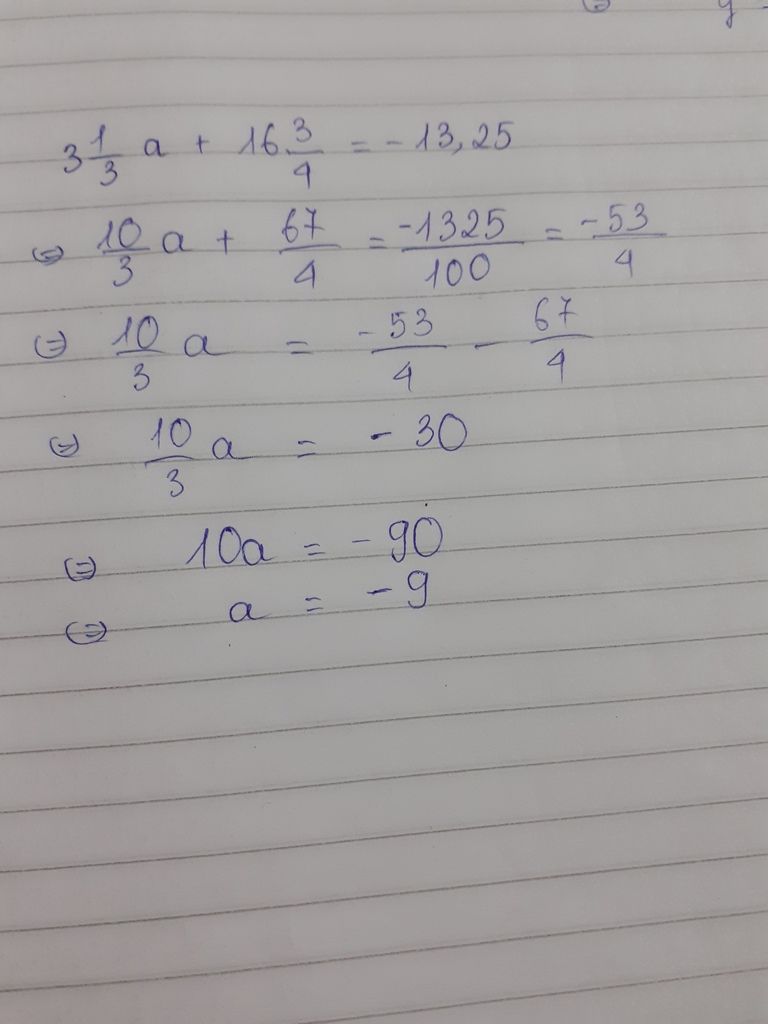 3 1/3 a + 16 3/4 = - 13,25
⇔ 10/3 a + 67/4 = -1325/100 = -53/4
⇔ 10/3 a = -53/4 - 67/4
⇔ 10/3 a = - 30
⇔ 10a = - 90
⇔ a = - 9